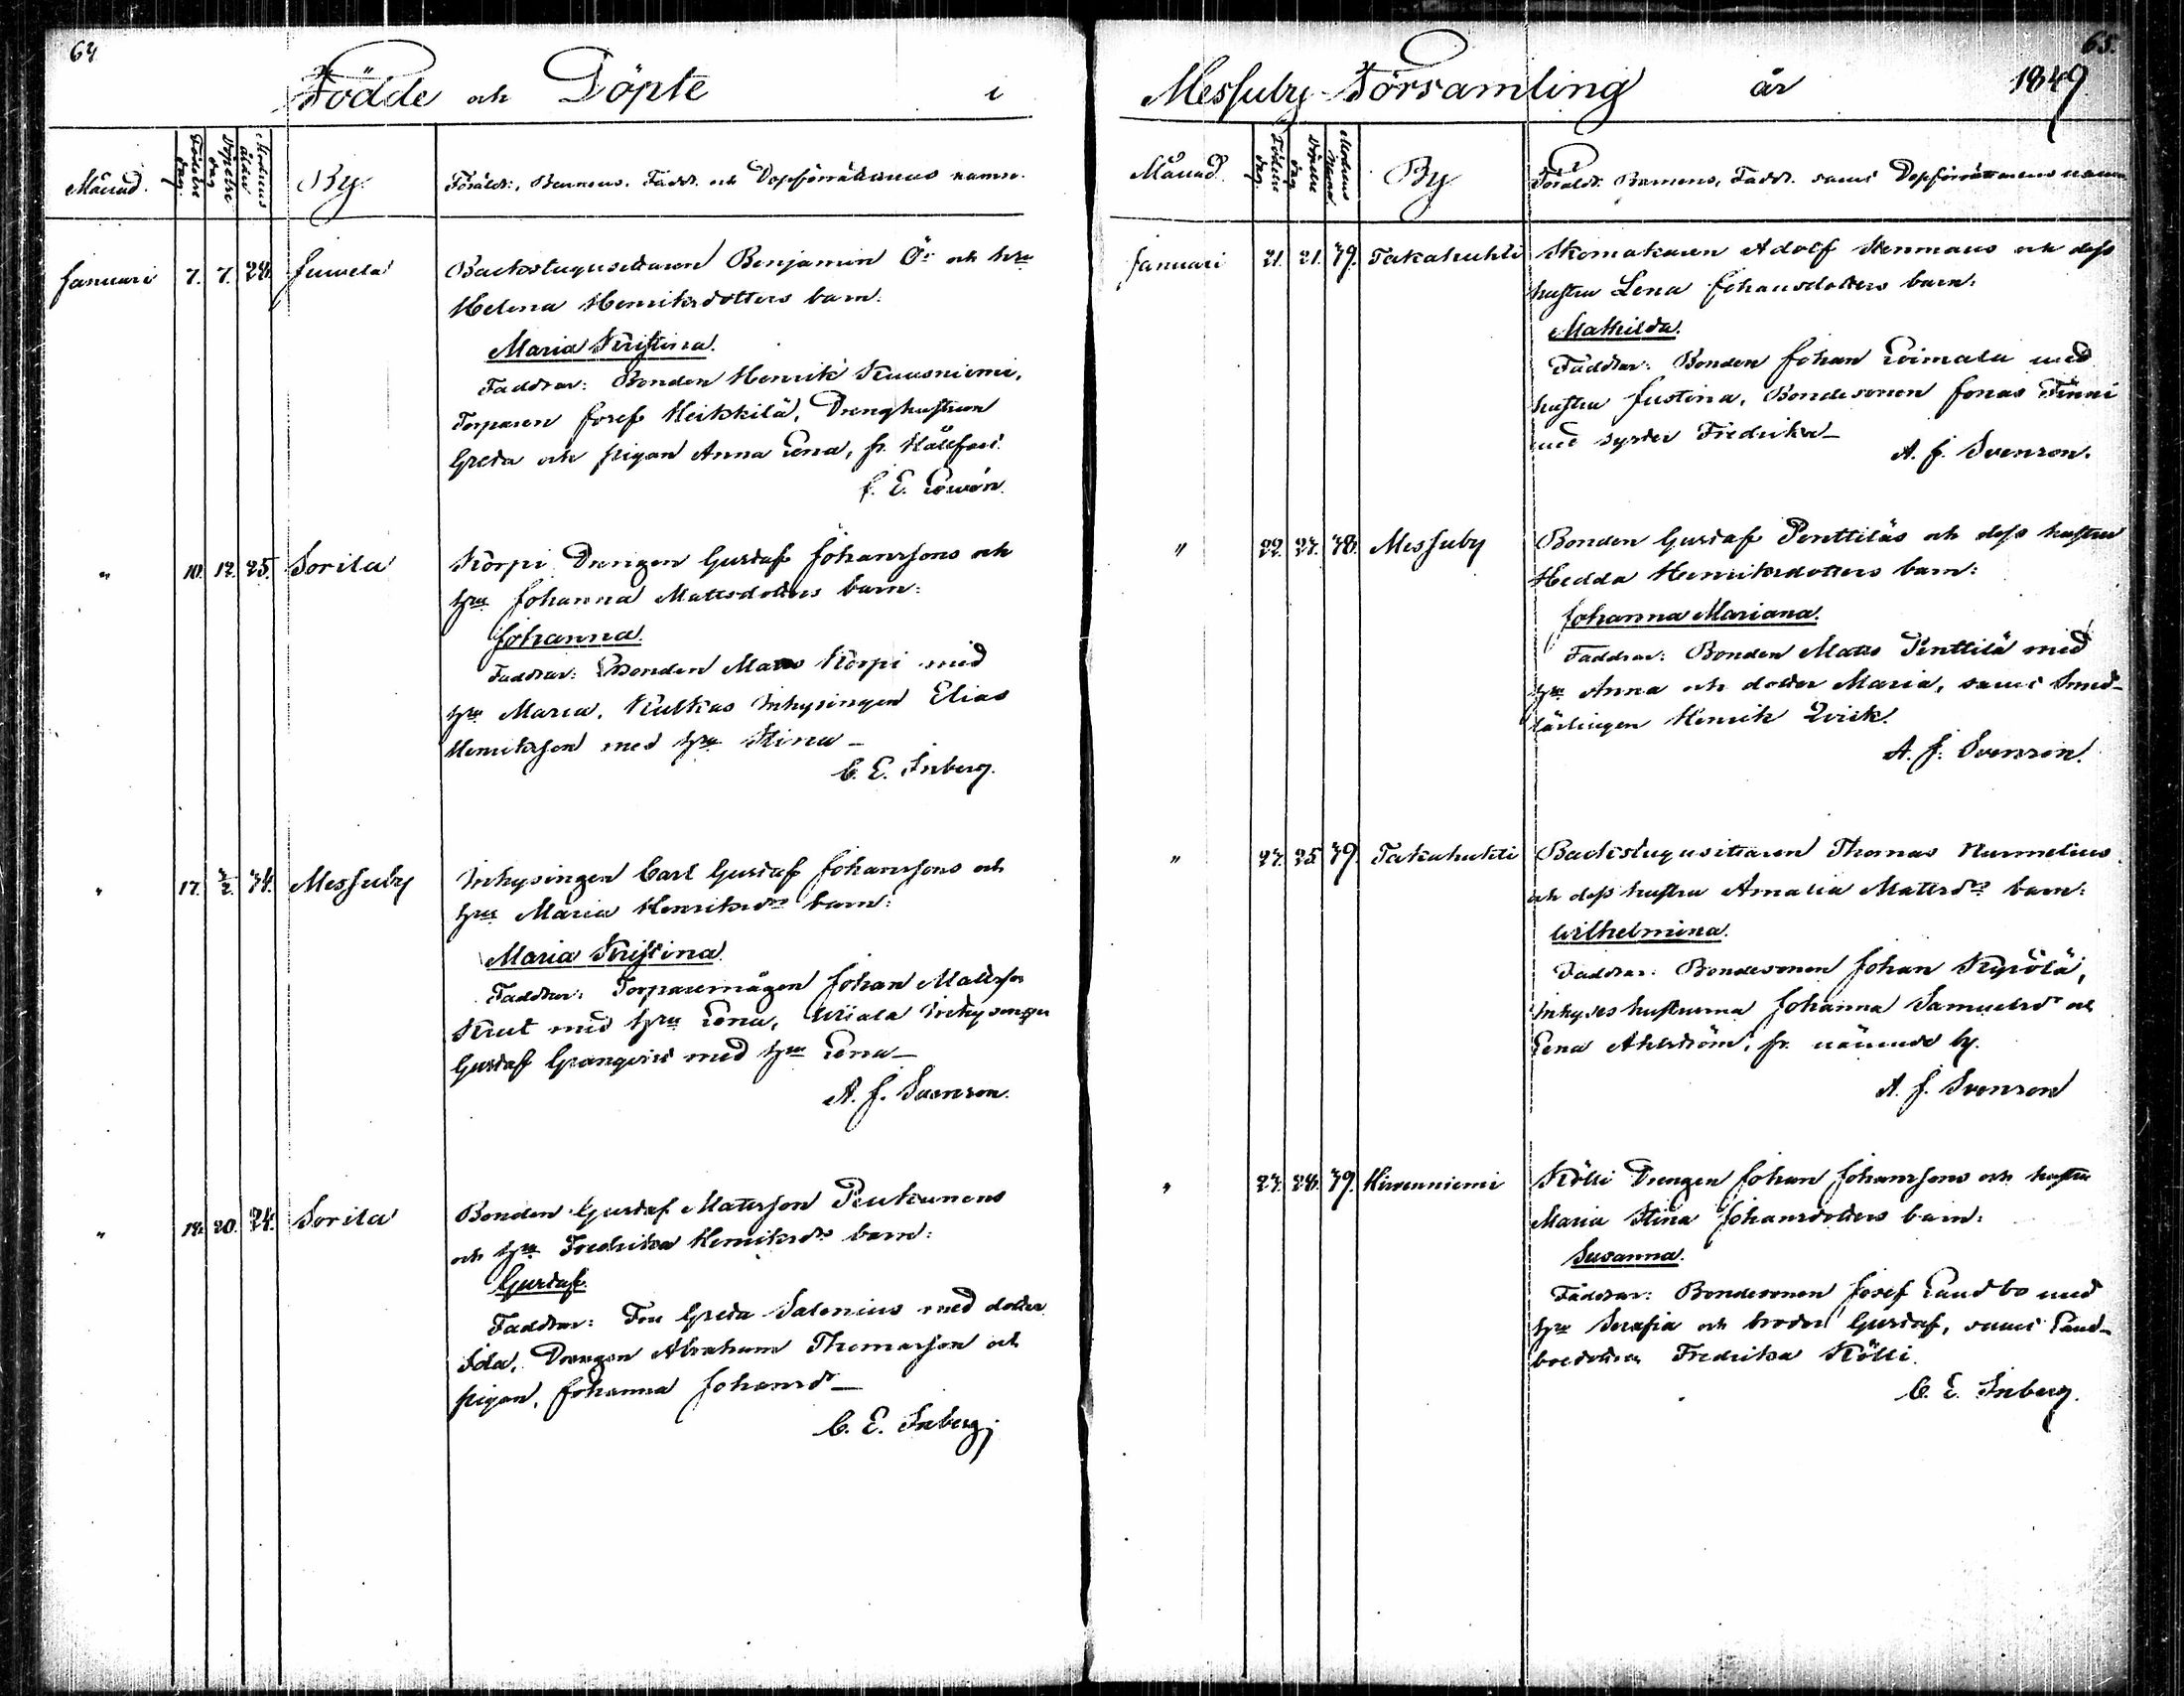 64
Födde och Döpte i
Månad. Födelse dag. Döpelse dag Modrens ålder By. Föräldr., Barnens, Fadd. och Dopförrättarens namn.
Januari 7. 7. 28. Juvela Backstugusittaren Benjamin Ö:s och hru
Helena Henriksdotters barn:
Maria Kristina.
Faddrar: Bonden Henrik Kuusniemi,
Torparen Josef Heikkilä, Drenghustrun
Greta och pigan Anna Lena, fr.
" 10. 12. 25. Sorila Korpi Drengen Gustaf Johanssons och
hru Johanna Mattsdotters barn:
Johanna.
Faddrar: Bonden Matts Korpi med
hru Maria, Kulkas Inhysingen Elias
Henriksson med hru Stina –
C. E. Inberg.
" 17. 34. Messuby Inhysingen Carl Gustaf Johanssons och
hru Maria Henriksdrs barn:
Maria Kristina
Faddrar: Torparemågen Johan Mattsson
med hru Lena, Wiiala Inhysingen
Gustaf Granqvist med hru Lena –
A. J. Svenson.
" 18. 20. 24. Sorila Bonden Gustaf Mattsson Peukunens
och hru Fredrika Henriksdrs barn:
Gustaf.
Faddrar: Fru Greta Salenius med dotter
Ida, Drengen Abraham Thomasson och
pigan, Johanna Johansdr –
C. E. Inberg.
65.
Messuby Församling år 1849
Månad. Födelse dag. Döpelse dag Modrens ålder By Föräldr. Barnens, Fadd. samt Dopförrättarens namn
Januari 21. 21. 39. Takahuhti Skomakaren Adolf Stenmans och dess
hustru Lena Johansdotters barn:
Mathilda.
Faddrar: Bonden Johan Loimala med
hustru Justina, Bondesonen Jonas Finni
med syster Fredrika –
A. J. Svenson.
" 22. 27. 38. Messuby Bonden Gustaf Penttiläs och dess hustru
Hedda Henriksdotters barn:
Johanna Mariana.
Faddrar: Bonden Matts Penttilä med
hru Anna och dotter Maria, samt Smed-
lärlingen Henrik Qvick.
A. J. Svenson.
" 23. 25 39. Takahuhti Backstugusittaren Thomas Nurmelius
och dess hustru Amalia Mattsdrs barn:
Wilhelmina.
Faddrar: Bondesonen Johan Kyrölä,
Inhyses hustrurna Johanna Samuelsdr och
Lena Ahlström, fr. nämnde by.
A. J. Svenson
" 27. 28. 39. Hirvenniemi Kölli Drengen Johan Johanssons och hustru
Maria Stina Johansdotters barn:
Susanna.
Faddrar: Bondesonen Josef Landbo med
hru Serafia och broder Gustaf, samt Land-
boedottren Fredrika Kölli.
C. E. Inberg.